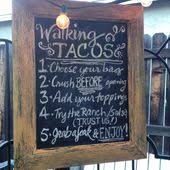 Walking
TACOS
1. Choose your bag
2. Crush BEFORE opening
3. Add your toppings
4. Try the Ranch/Salsa
(TRUST US!)
5. grab a fork & ENJOY!